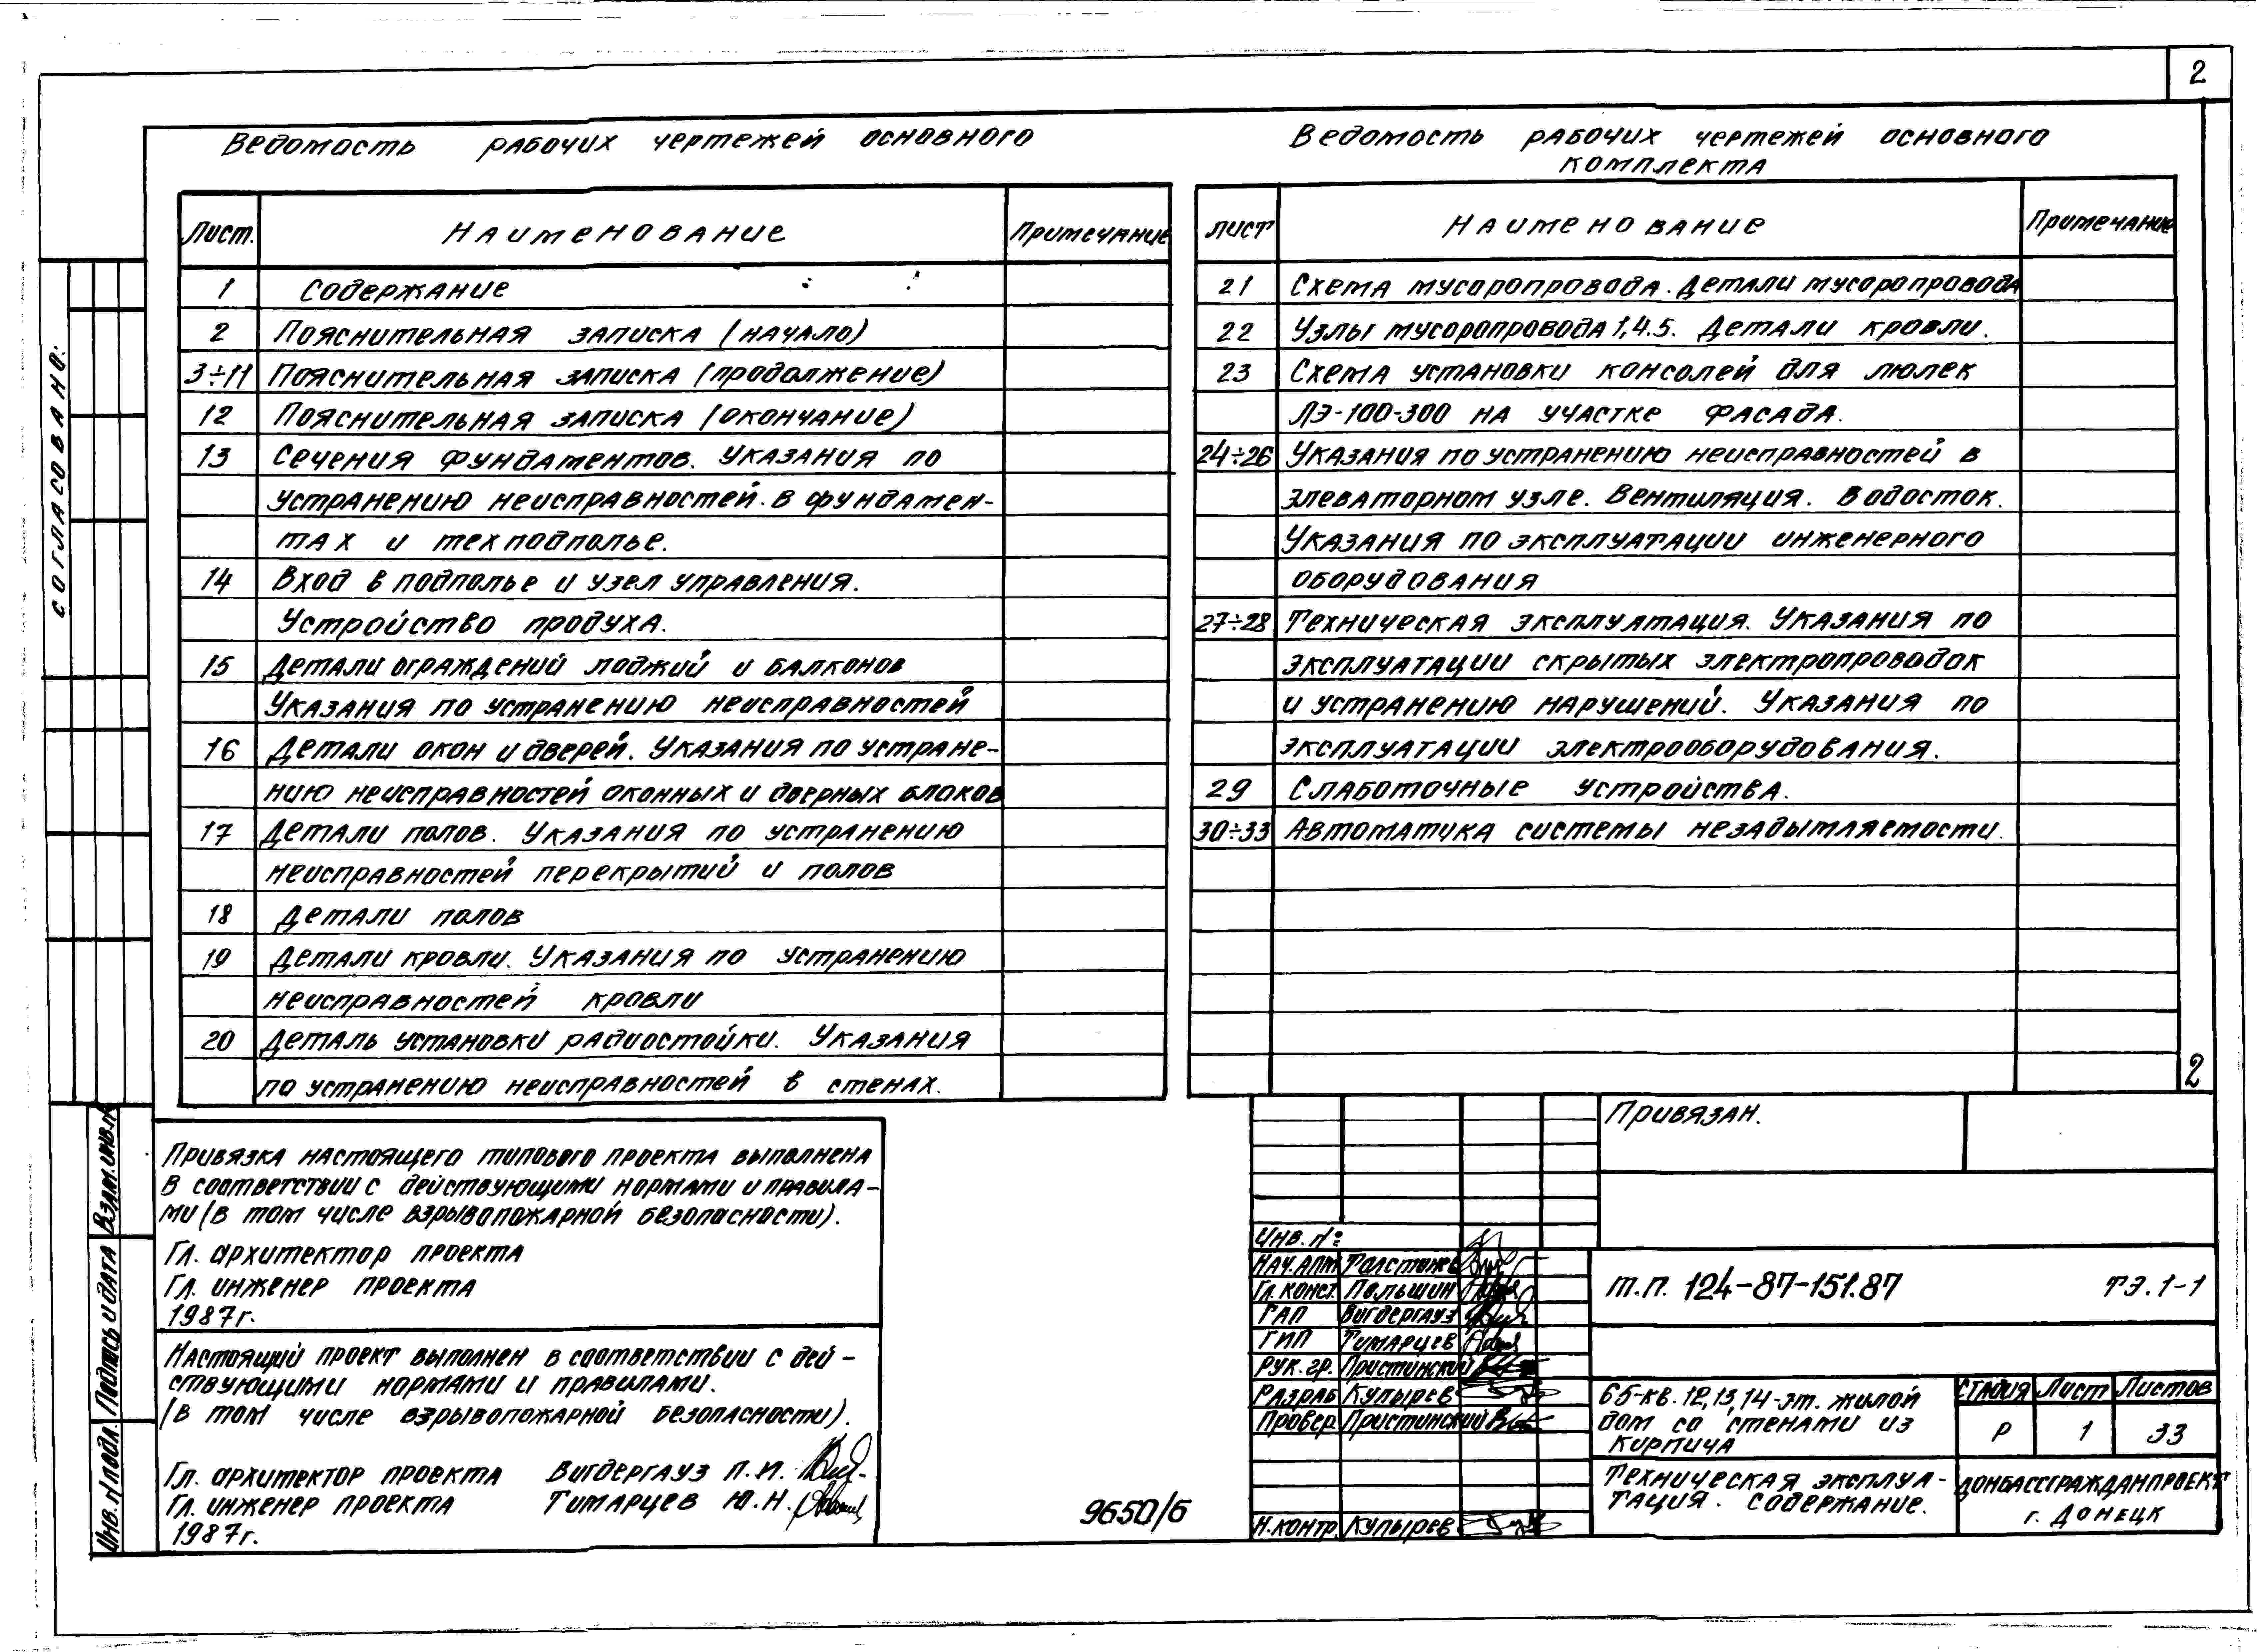 2
Ведомость рабочих чертежей основного
Лист. Наименование Примечание
1 Содержание
2 Пояснительная записка (начало)
3÷11 Пояснительная записка (продолжение)
12 Пояснительная записка (окончание)
13 Сечения фундаментов. Указания по
устранению неисправностей в фундамен-
тах и техподполье.
14 Вход в подполье и узел управления.
Устройство продуха.
15 Детали ограждений лоджий и балконов
Указания по устранению неисправностей
16 Детали окон и дверей. Указания по устране-
нию неисправностей оконных и дверных блоков
17 Детали полов. Указания по устранению
неисправностей перекрытий и полов
18 Детали полов
19 Детали кровли. Указания по устранению
неисправностей кровли
20 Деталь установки радиостойки. Указания
по устранению неисправностей в стенах.
Ведомость рабочих чертежей основного
комплекта
Лист Наименование Примечание
21 Схема мусоропровода. Детали мусоропровода
22 Узлы мусоропровода 1,4.5. Детали кровли.
23 Схема установки консолей для люлек
ЛЭ-100-300 на участке фасада.
24÷26 Указания по устранению неисправностей в
элеваторном узле. Вентиляция. Водосток.
Указания по эксплуатации инженерного
оборудования
27÷28 Техническая эксплуатация. Указания по
эксплуатации скрытых электропроводок
и устранению нарушений. Указания по
эксплуатации электрооборудования.
29 Слаботочные устройства.
30÷33 Автоматика системы незадымляемости.
2
Согласовано:
Взам.инв.№
Подпись и дата
Инв.№подл.
Привязка настоящего типового проекта выполнена
в соответствии с действующими нормами и правила-
ми (в том числе взрывопожарной безопасности).
Гл. архитектор проекта
Гл. инженер проекта
1987г.
Настоящий проект выполнен в соответствии с дей-
ствующими нормами и правилами.
(в том числе взрывопожарной безопасности).
Гл. архитектор проекта Вигдергауз П.И.
Гл. инженер проекта Тимарцев Ю.Н.
1987г.
9650/6
Привязан.
Инв.№
Нач.АПМ
Гл.конст. Пальшин
ГАП Вигдергауз
ГИП Тимарцев
Рук.гр. Пристинский
Разраб Купырев
Провер. Пристинский
Н.контр. Купырев
т.п. 124-87-151.87 ТЭ.1-1
65-кв. 12,13,14-эт. жилой
дом со стенами из
кирпича
Стадия Лист Листов
Р 1 33
Техническая эксплуа-
тация. Содержание.
Донбассгражданпроект
г. Донецк